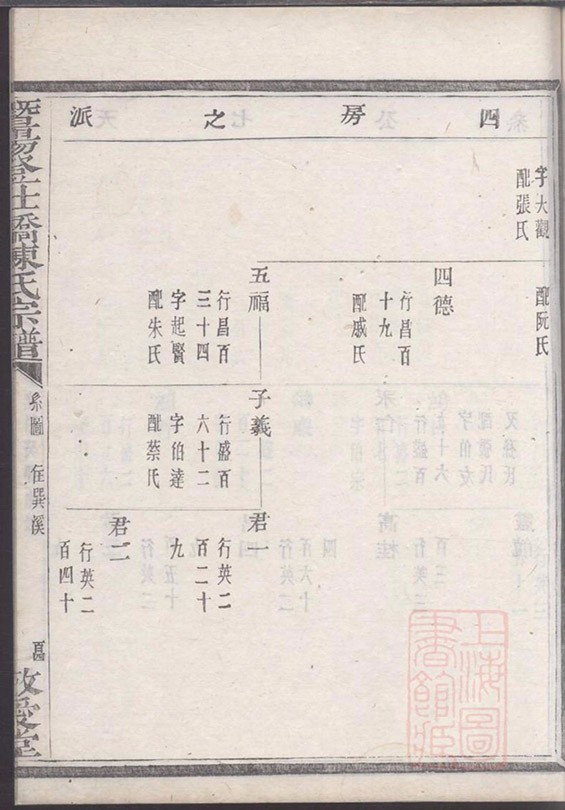 四房之派
字大觀
配張氏
配阮氏
四德
行昌百
十九
配戚氏
五福
行昌百
三十四
字起賢
配朱氏
子義
行盛百
六十二
字伯達
配蔡氏
君一
行英二
百二十
九
君二
行英二
百四十
暨陽登仕橋陳氏宗譜
系圖
在巽溪
敬愛堂
上海圖
書館藏